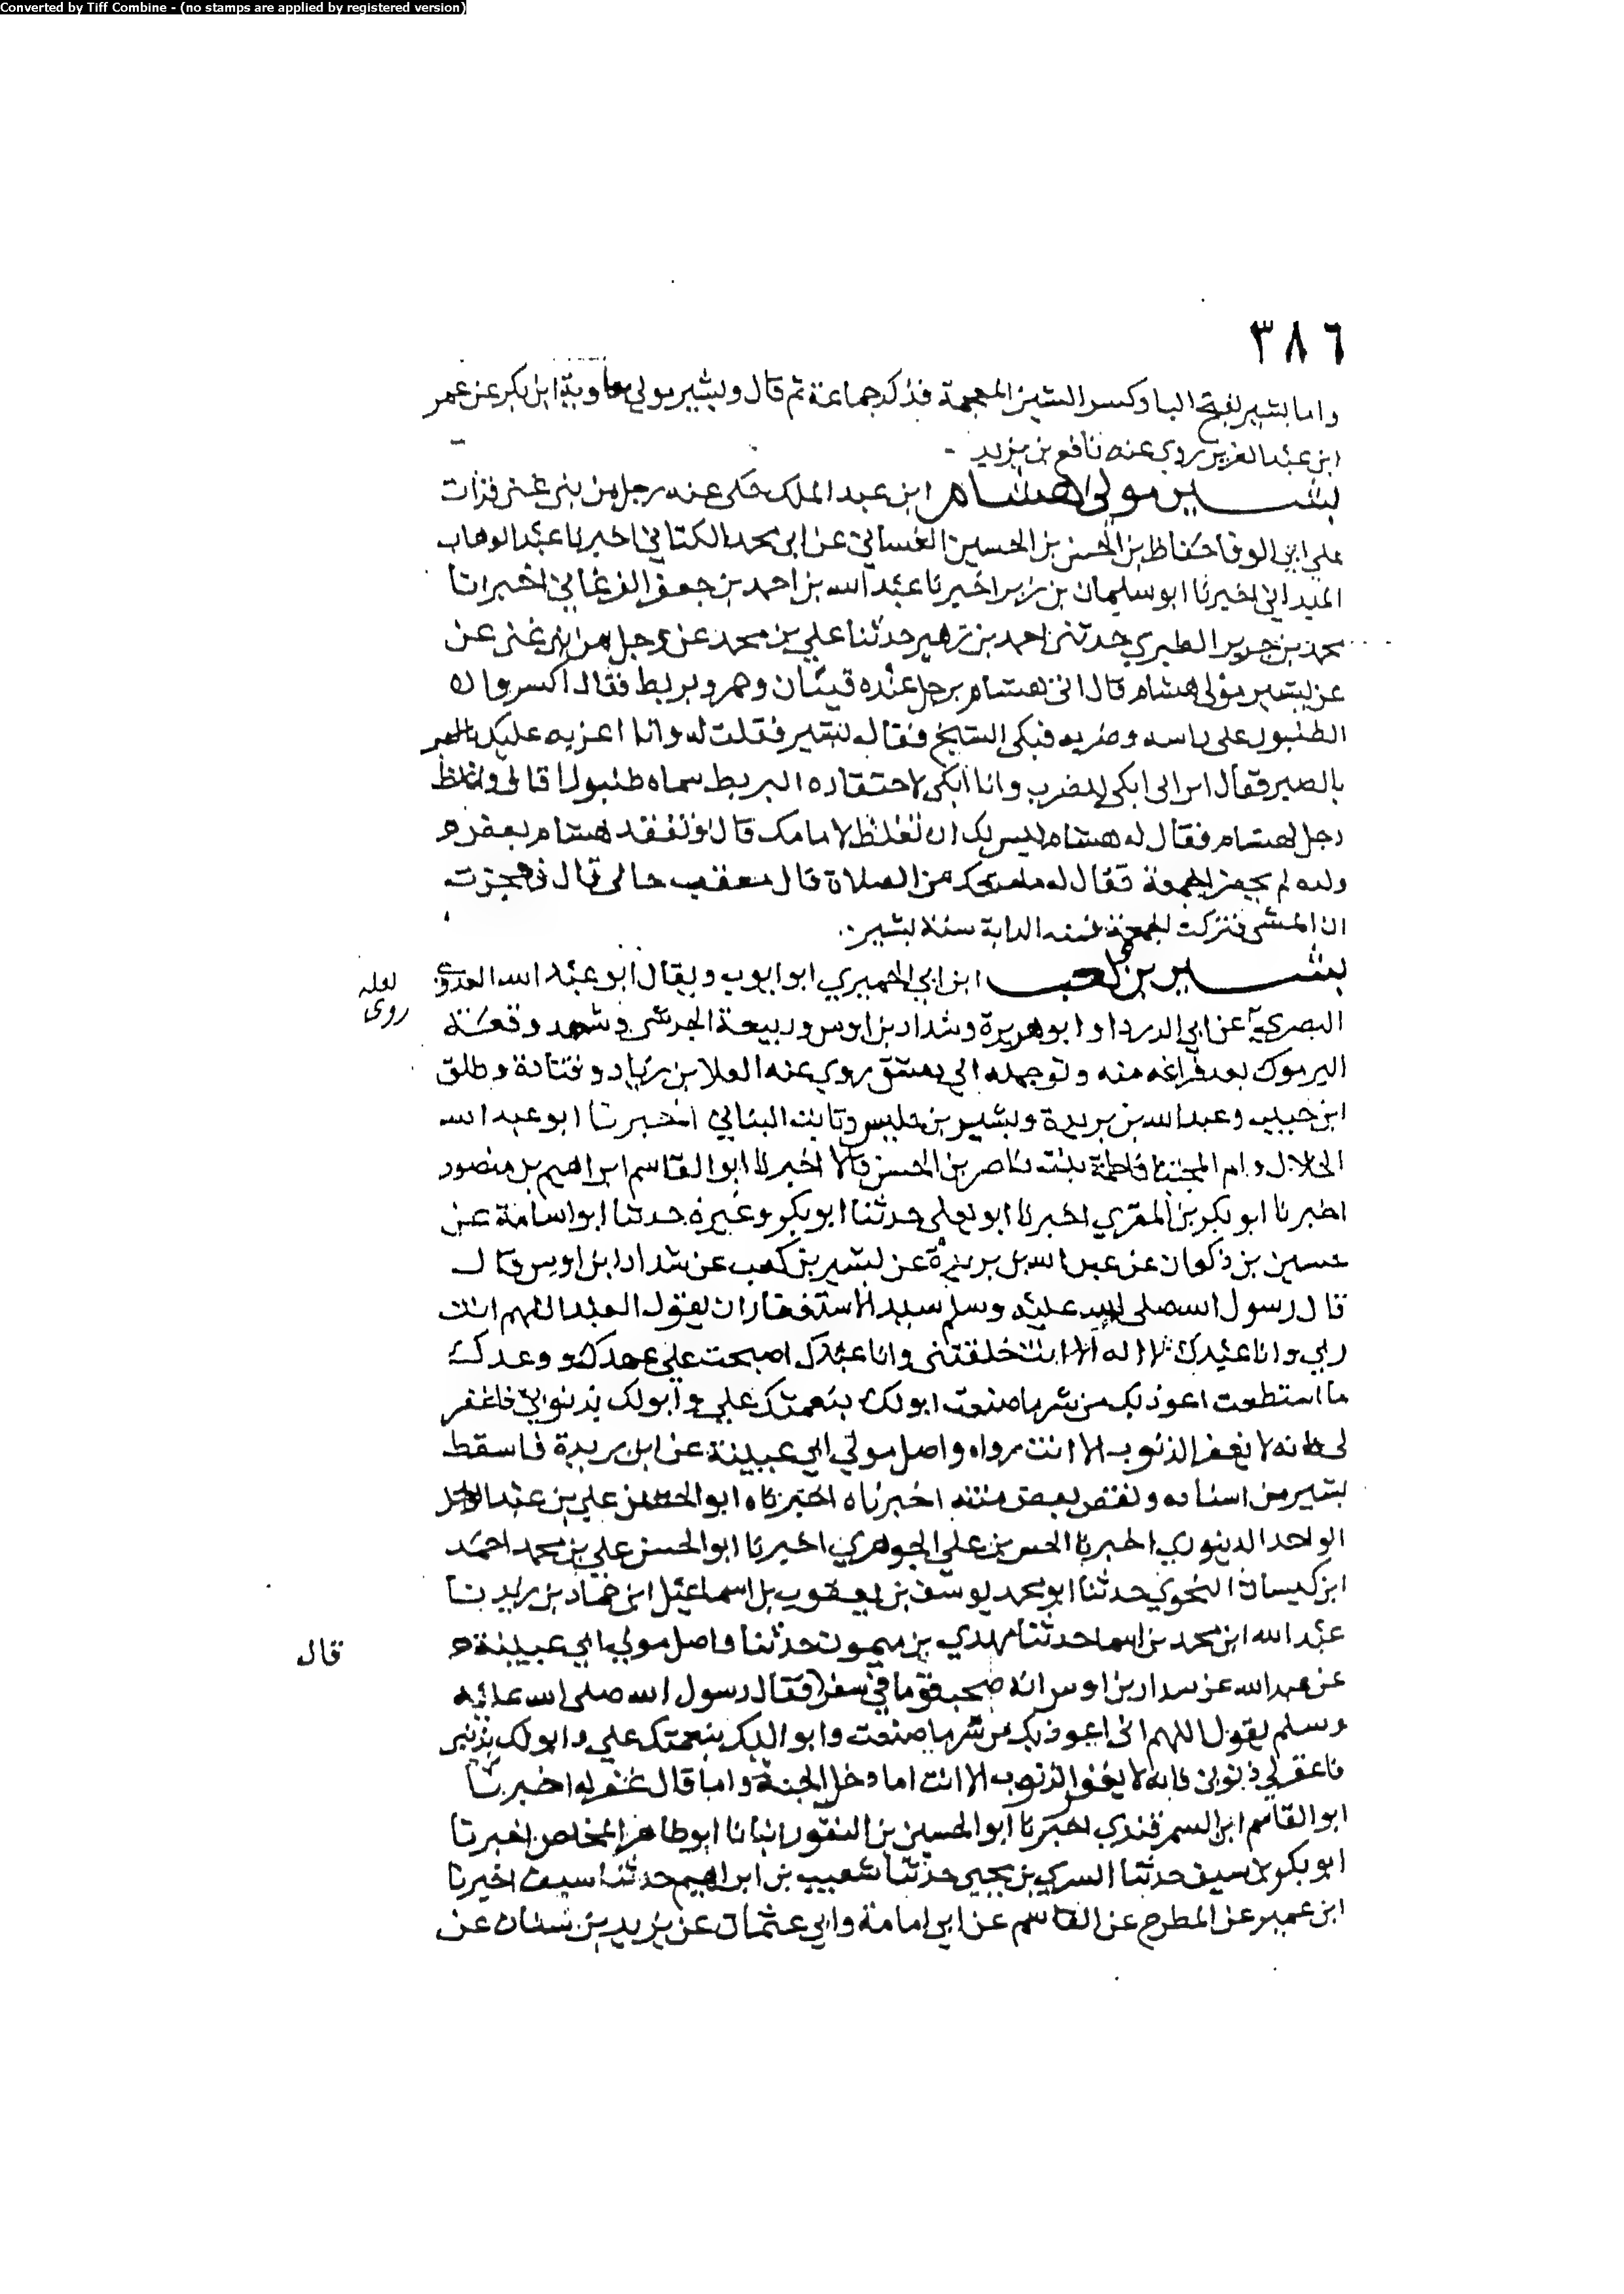 Converted by Tiff Combine - (no stamps are applied by registered version)
٣٨٦
واما بشير بفتح الباء وكسر الشين المعجمة فذكر جماعة ثم قال وبشير مولى معاوية ابن بكر عن عمر
ابن عبد العزيز روي عنه نافع بن يزيد
بشير مولى هشام ابن عبد الملك حكى عنه رجل من بنى غنى قرات
علي ابي الوفا حفاظ بن الحسن بن الحسين الغساني عن ابى محمد الكتاني اخبرنا عبد الوهاب
الميداني اخبرنا ابو سليمان بن زبر اخبرنا عبد الله بن احمد بن جعفر الفرغاني اخبرانا
محمد بن جرير الطبري حدثني احمد بن زهير حدثنا علي بن محمد عن رجل من بنى غنى عن
عن بشير مولى هشام قال اتى هشام برجل عنده قينان وخمر وبربط فقال اكسروا
الطنبور على راسه وضربه فبكى الشيخ فقال بشير فقلت له وانا اعزيه عليك
بالصبر فقال اتراني ابكى للضرب وانا ابكى لاحتقاره البربط سماه طنبورا قال واغلظ
رجل لهشام فقال له هشام ليس لك ان تغلظ لامامك قال وتفقد هشام بعض
ولده لم يحضر الجمعة فقال له ما منعك من الصلاة قال حالى قال فعجزت
ان المشى فتركت الجمعة الدابة سنة بشير
بشير بن كعب ابن ابي الحميري ابو ايوب ويقال ابو عبد الله العدوي
لعله
روى
البصري عن ابي الدرداء وابو هريرة وشداد بن اوس وربيعة الجرشى وشهد وقعة
اليرموك بعد فراغه منه وتوجهه الى دمشق روي عنه العلا بن زياد وقتادة وطلق
ابن حبيب وعبد الله بن بريدة وبشير بن حلبس وثابت البناني اخبرنا ابو عبد الله
الخلال وام المجتبا فاطمة بنت ناصر بن الحسن قالا اخبرنا ابو القاسم ابراهيم بن منصور
اخبرنا ابو بكر بن المقري اخبرنا ابو يعلى حدثنا ابو بكر وغيره حدثنا ابو اسامة عن
حسين بن ذكوان عن عبد الله بن بريدة عن بشير بن كعب عن شداد ابن اوس قال
قال رسول الله صلى الله عليه وسلم سيد الاستغفار ان يقول العبد اللهم انت
ربي وانا عبدك لا اله الا انت خلقتنى وانا عبدك اصبحت على عهدك ووعدك
ما استطعت اعوذ بك من شر ما صنعت ابو لك بنعمتك علي وابو لك بذنوبي فاغفر
لى فانه لا يغفر الذنوب الا انت رواه واصل مولي ابي عيينة عن ابن بريدة فاسقط
بشير من اسناده ونقص بعض متنه اخبرناه اخبرناه ابو الحسن علي بن عبد الواحد
الواحد الدينوري اخبرنا الحسن بن علي الجوهري اخبرنا ابو الحسن علي بن محمد احمد
ابن كيسان النحوي حدثنا ابو محمد يوسف بن يعقوب بن اسماعيل ابن حماد بن زيد بنا
عبد الله ابن محمد بن اسما حدثنا مهدي بن ميمون حدثنا واصل مولي ابي عيينة
قال
عن عبد الله عن شداد بن اوس انه صحب قوما في سفر فقال رسول الله صلى الله عليه
وسلم يقول اللهم انى اعوذ بك من شر ما صنعت وابو اليك بنعمتك علي وابو لك بذنبي
فاغفر لي ذنوبي فانه لا يغفر الذنوب الا انت اما دخل الجنة واما قال غفر له اخبرنا
ابو القاسم ابن السمرقندي اخبرنا ابو الحسين بن النقور انبانا ابو طاهر المخلص اخبرنا
ابو بكر بن سيف حدثنا السري بن يحيى حدثنا شعيب بن ابراهيم حدثنا سيف اخبرنا
ابن عمير عن المطرح عن القاسم عن ابي امامة وابي عثمان عن يزيد بن سنان عن